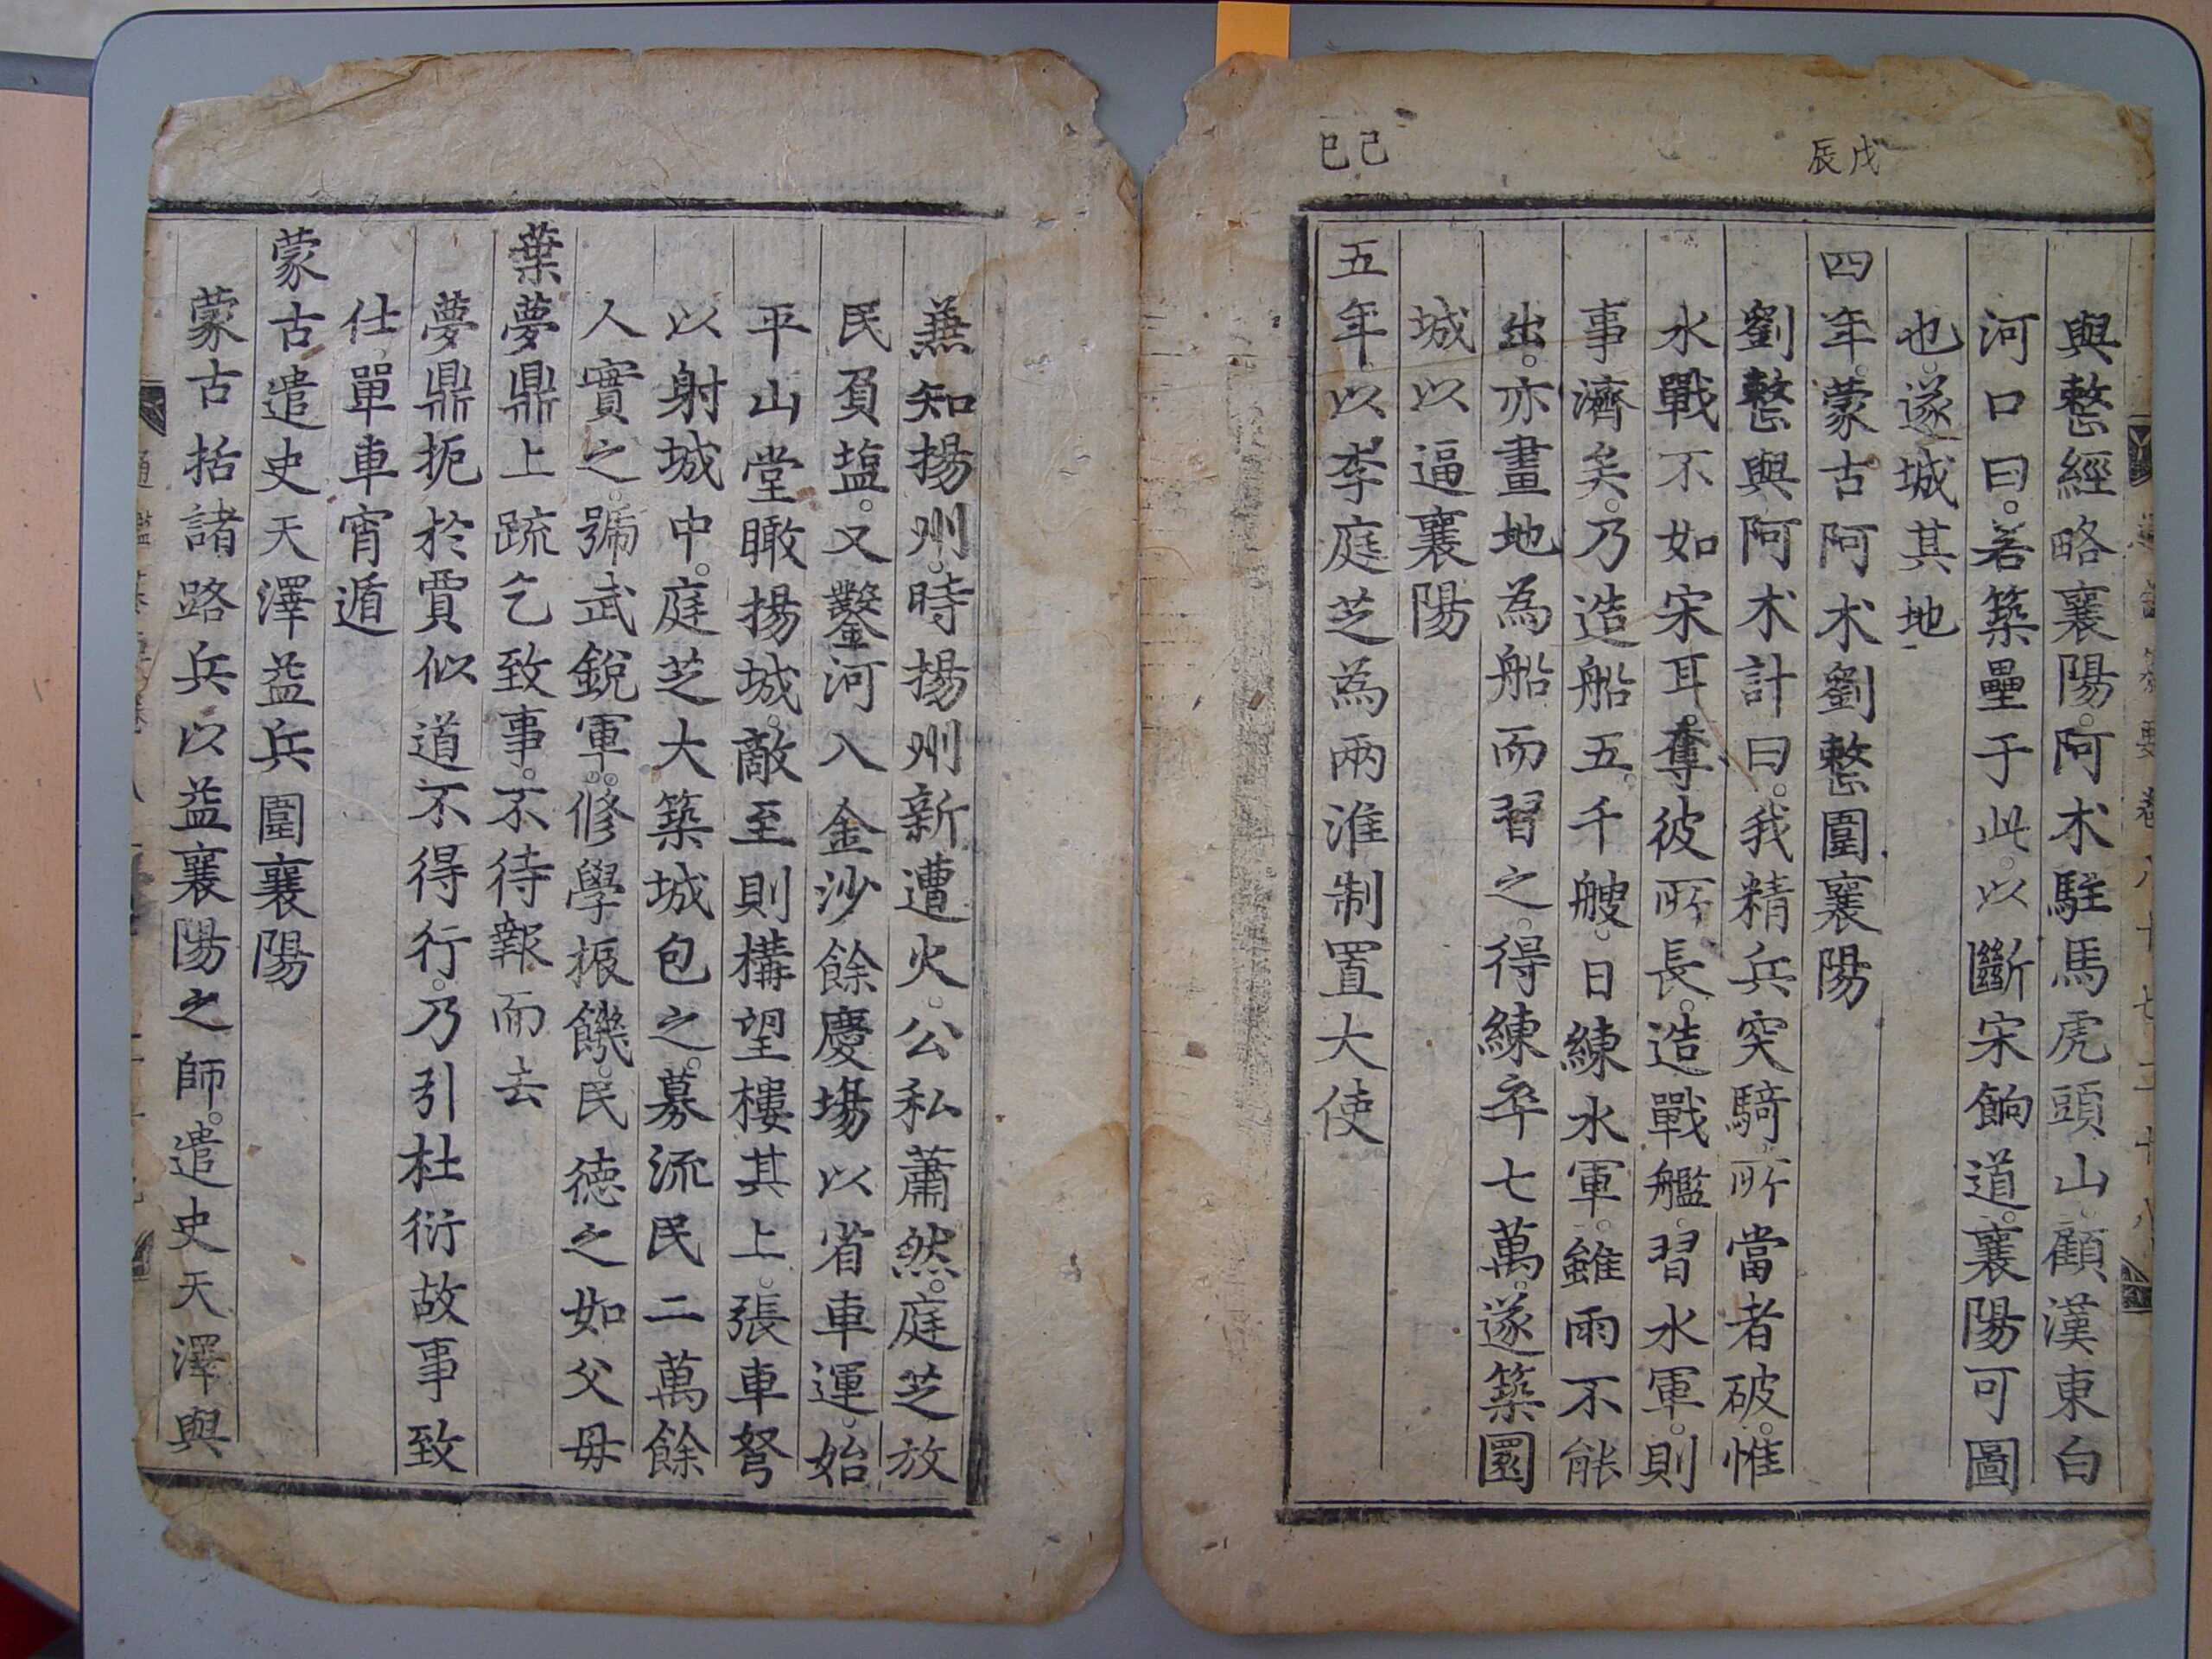 戊辰
己巳
與整經略襄陽。阿术駐馬虎頭山。顧漢東白
河口曰。若築壘于此。以斷宋餉道。襄陽可圖
也。遂城其地
四年。蒙古阿术劉整圍襄陽
劉整與阿术計曰。我精兵突騎。所當者破。惟
水戰不如宋耳。奪彼所長。造戰艦。習水軍。則
事濟矣。乃造船五千艘。日練水軍。雖雨不能
出。亦畫地為船而習之。得練卒七萬。遂築圜
城以逼襄陽
五年。以李庭芝為兩淮制置大使
兼知揚州。時揚州新遭火。公私蕭然。庭芝放
民負塩。又鑿河入金沙餘慶場以省車運。始
平山堂瞰揚城。敵至則構望樓其上。張車弩
以射城中。庭芝大築城包之。募流民二萬餘
人實之。號武銳軍。修學振饑。民德之如父母
葉夢鼎上疏乞致事。不待報而去
夢鼎扼於賈似道不得行。乃引杜衍故事致
仕。單車宵遁
蒙古遣史天澤益兵圍襄陽
蒙古括諸路兵以益襄陽之師。遣史天澤與